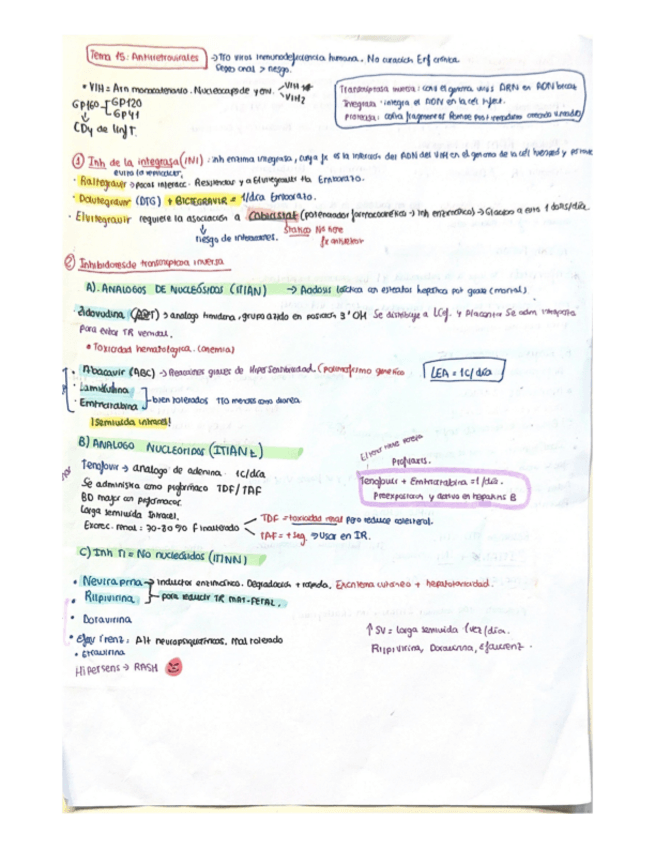 Tema 15: Antirretrovirales → Tto virus inmunodeficiencia humana. No curación Enf crónica
riesgo.
• VIH = Arn monocatenario. Nucleocapside y env. VIH 1
VIH 2
GP160 - GP120
GP41
CD4 de linf T.
Transcriptasa inversa: conv el genoma virus ARN en ADN bicat
Integrasa: integra el ADN en la cel infect.
Proteasa: corta fragmentos
① Inh de la integrasa (INI): inh enzima integrasa, cuya fx es la integración del ADN del VIH en el genoma de la cel huesped y
• Raltegravir → pocas interacc. Embarazo.
• Dolutegravir (DTG) + BICTEGRAVIR = 1/día Embarazo.
• Elvitegravir requiere la asociación a Cobicistat (potenciador farmacocinético → Inh enzimático) → Gracias a esto 1 dosis/día
↓ riesgo de interacciones. No tiene
fx antiviral
② Inhibidores de transcriptasa inversa
A). ANALOGOS DE NUCLEÓSIDOS (ITIAN) → Acidosis láctica con esteatosis hepática pot grave (mortal).
• Zidovudina (AZT) → analogo timidina, grupo azido en posición 3' OH Se distribuye a LCef. y Placenta
Para evitar TR vertical.
* Toxicidad hematológica. (anemia)
• Abacavir (ABC) → Reacciones graves de Hipersensibilidad. (polimorfismo genético LEA = 1c/día
• Lamivudina
• Emtricitabina bien tolerados
¡Semivida intracel!
B) ANALOGO NUCLEOTIDOS (ITIANt)
Tenofovir → analogo de adenina. 1c/día
Se administra como profármaco TDF/TAF
BD mayor con profármaco.
Larga semivida intracel.
Excrec. renal = 70-80% f inalterado
TDF = toxicidad renal pero reduce colesterol.
TAF = + seg. → Usar en IR.
Profilaxis.
Tenofovir + Emtricitabina = 1/día.
Preexposicion y activo en hepatitis B
C) Inh TI = No nucleósidos (ITINN)
• Nevirapina → inductor enzimático. Degradación + rápida. Exantema cutáneo + hepatotoxicidad.
• Rilpivirina para reducir TR mat-fetal.
• Doravirina
• Efavirenz = Alt neuropsiquiátricas. Mal tolerado
• Etravirina
Hipersens → RASH
↑ SV = larga semivida 1 vez/día.
Rilpivirina, Doravirina, efavirenz.